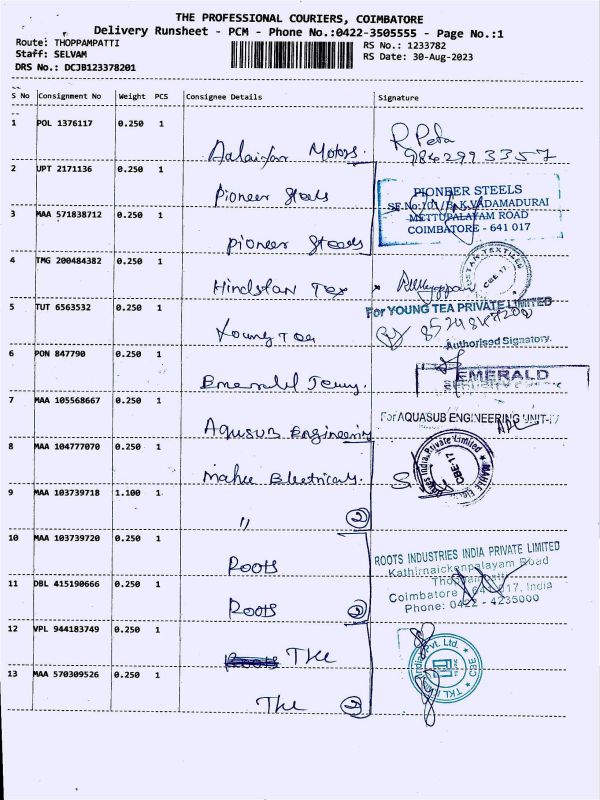 THE PROFESSIONAL COURIERS, COIMBATORE
Delivery Runsheet - PCM - Phone No.:0422-3505555 - Page No.:1
Route: THOPPAMPATTI
RS No.: 1233782
Staff: SELVAM
RS Date: 30-Aug-2023
DRS No.: DCJB123378201
S No Consignment No Weight PCS Consignee Details Signature
1 POL 1376117 0.250 1
Motors.
9842993357
2 UPT 2171136 0.250 1
Pioneer Steels
PIONEER STEELS
SF.No:101/B K.VADAMADURAI
METTUPALAYAM ROAD
COIMBATORE - 641 017
3 MAA 571838712 0.250 1
Pioneer Steels
4 TMG 200484382 0.250 1
Hindstan Tex
CBE-17
5 TUT 6563532 0.250 1
Young Tea
For YOUNG TEA PRIVATE LIMITED
Authorised Signatory.
6 PON 847790 0.250 1
Emerald
EMERALD
7 MAA 105568667 0.250 1
Aqusub Engineering
For AQUASUB ENGINEERING UNIT-
8 MAA 104777070 0.250 1
Mahle Electricals.
India Private Limited
CBE-17
9 MAA 103739718 1.100 1
" 2
10 MAA 103739720 0.250 1
Roots
ROOTS INDUSTRIES INDIA PRIVATE LIMITED
Kathirnaickenpalayam Road
Coimbatore 641 017, India
Phone: 0422 - 4235000
11 DBL 415190666 0.250 1
Roots 2
12 VPL 944183749 0.250 1
Roots The
Pvt. Ltd.
CBE
TKL
13 MAA 570309526 0.250 1
The 2